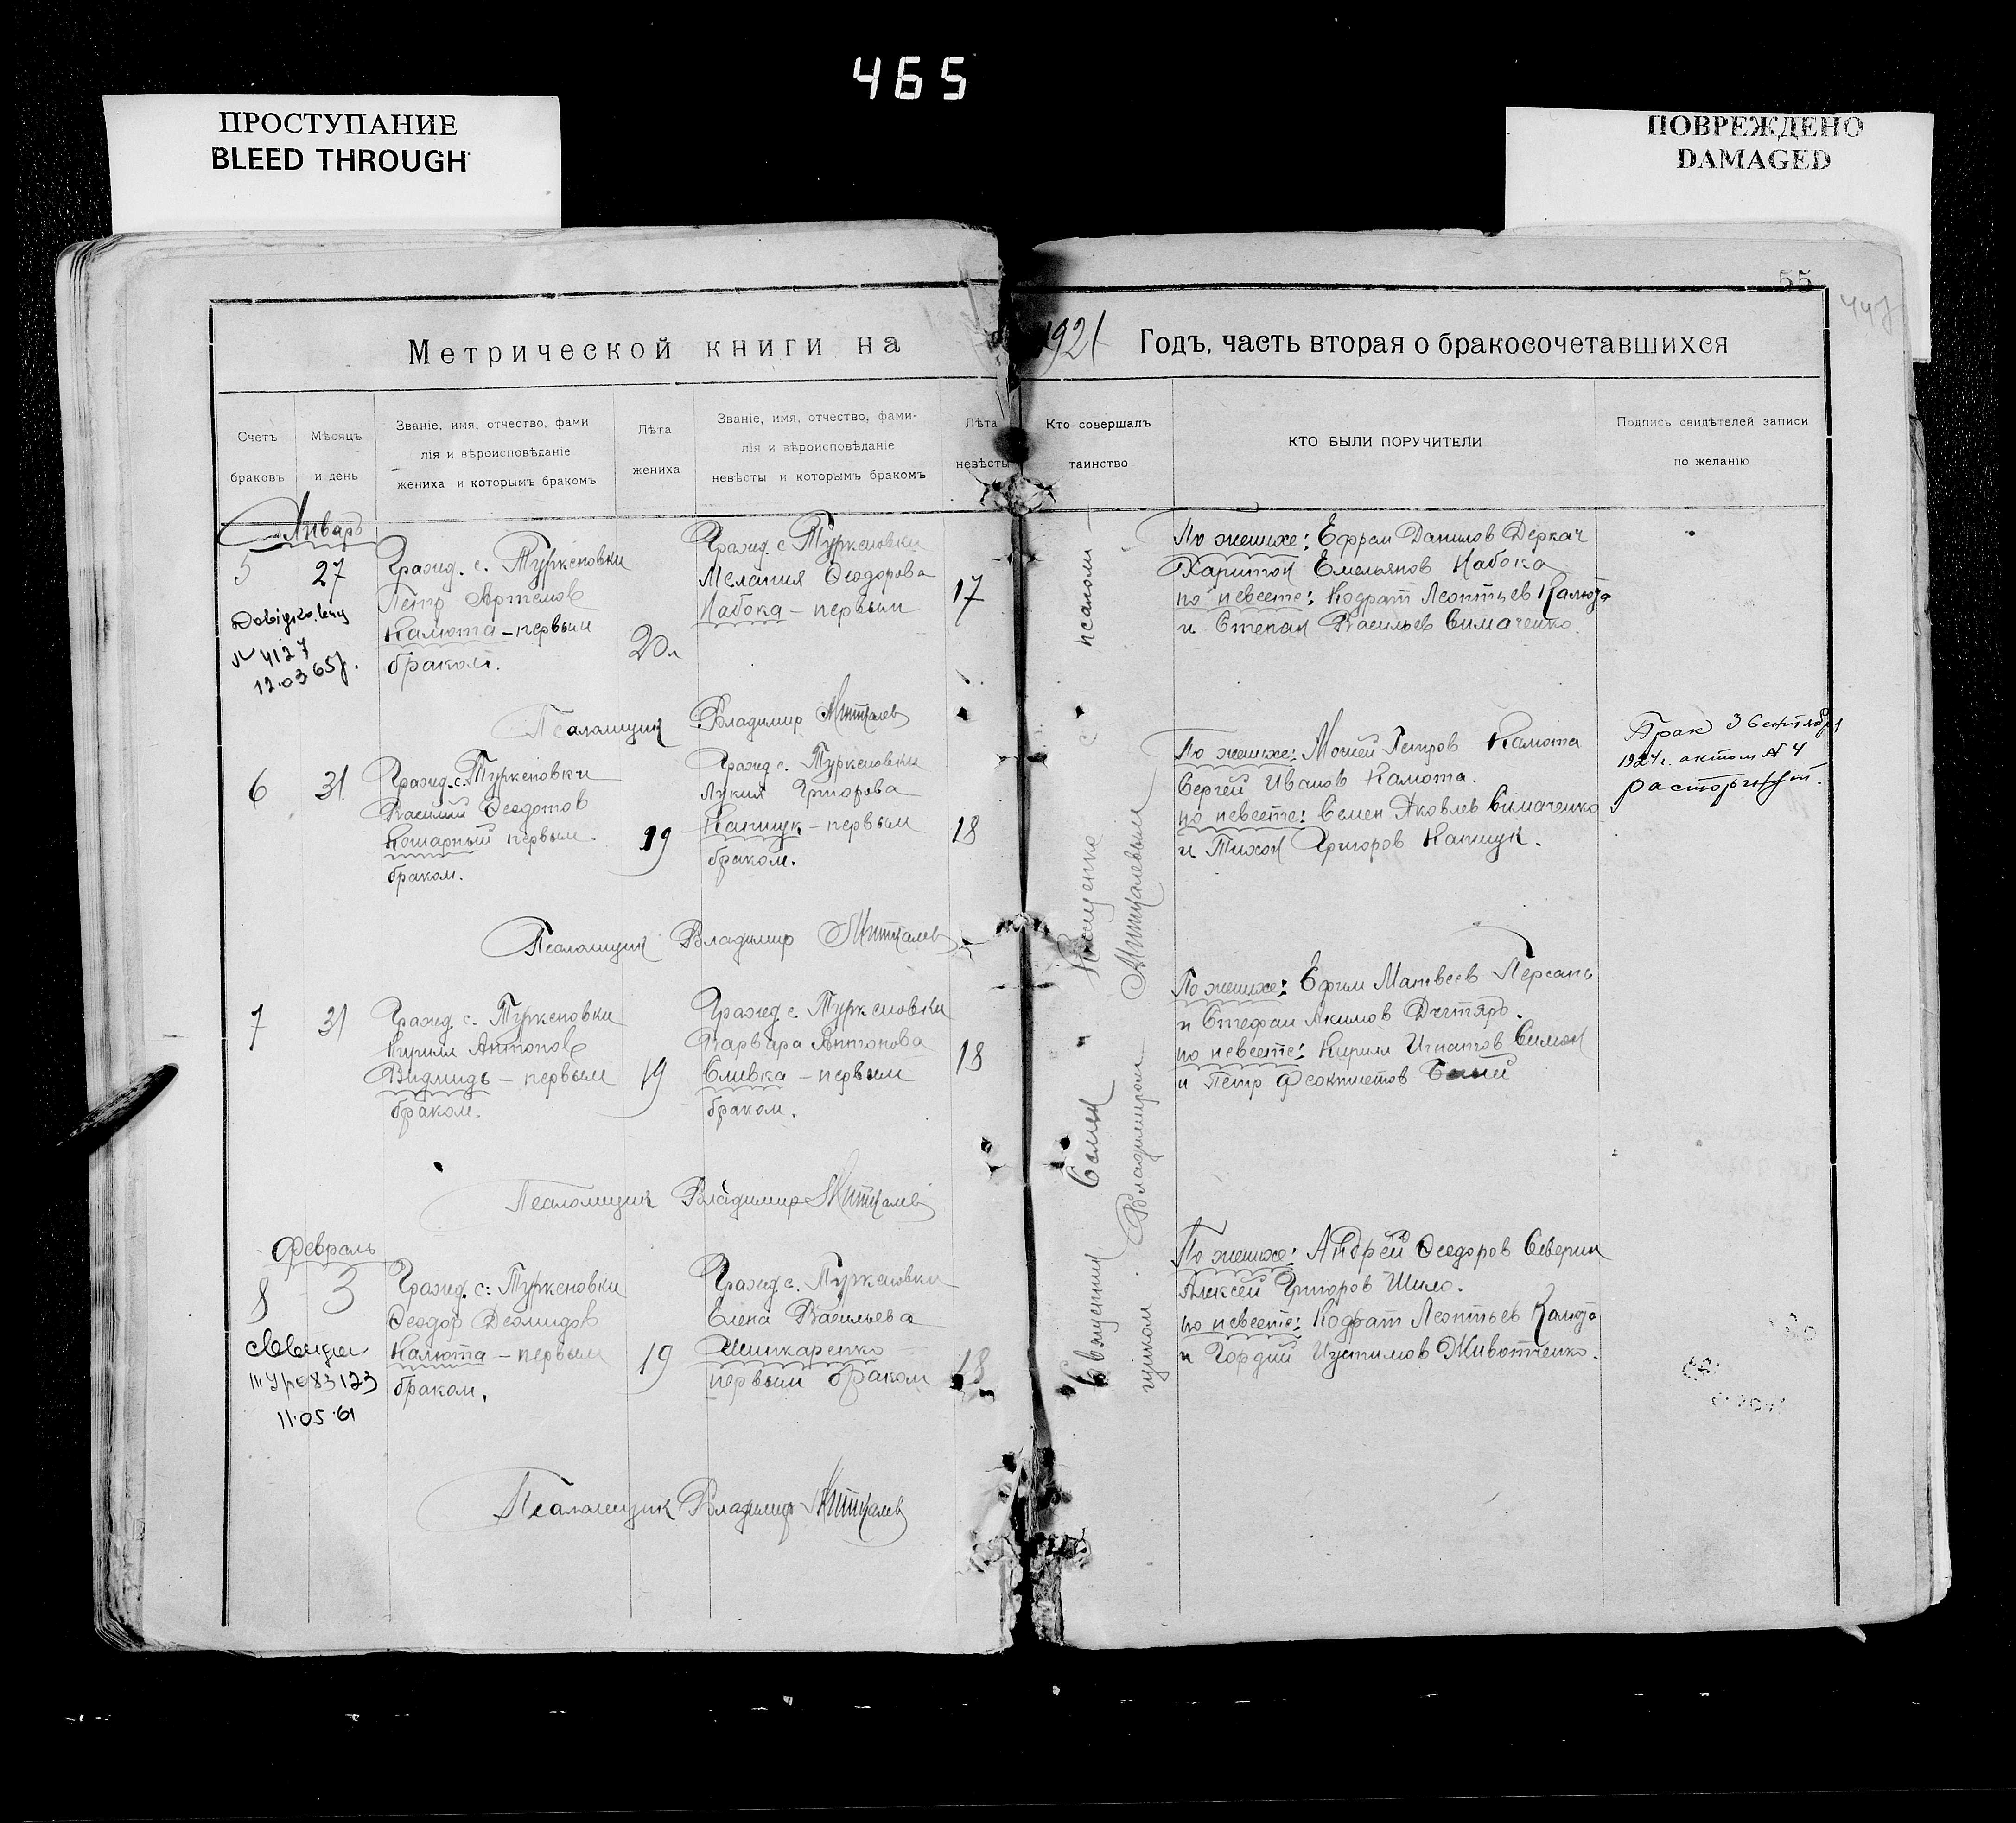 465
ПРОСТУПАНИЕ
BLEED THROUGH
ПОВРЕЖДЕНО
DAMAGED
55
Метрической книги на 1921 Годъ, часть вторая о бракосочетавшихся
Счетъ браковъ
Мѣсяцъ и день
Званіе, имя, отчество, фами
лія и вѣроисповѣданіе
жениха и которымъ бракомъ
Лѣта жениха
Званіе, имя, отчество, фами-
лія и вѣроисповѣданіе
невѣсты и которымъ бракомъ
Лѣта невѣсты
Кто совершалъ таинство
КТО БЫЛИ ПОРУЧИТЕЛИ
Подпись свидѣтелей записи
по желанію
Январь
5
27
№ 4127
12.03 65
Гражд. с. Туркеновки
Петр Артемов
Калюта - первым
браком.
20 л
Гражд. с Туркеновки
Мелания Феодорова
Набока - первым
17
По женихе: Ефрем Данилов Деркач
Харитон Емельянов Набока
по невесте: Кодрат Леонтьев Калюта
и Степан Васильев Симаченко.
Псаломщик Владимир
6
31
Гражд. с. Туркеновки
Василий Феодотов
Кошарный первым
браком.
19
Гражд с. Туркеновки
Лукия Григорова
Капщук - первым
браком.
18
По женихе: Мочей Петров Калюта
Сергей Иванов Калюта.
по невесте: Семен Яковлев Симаченко
и Тихон Григоров Капщук.
Брак 3 Сентября
1924 г. актом № 4
расторгнут.
Псаломщик Владимир
7
31
Гражд с. Туркеновки
Кирилл Антонов
Видмидь - первым
браком.
19
Гражд с. Туркеновки
Варвара Антонова
Сливка - первым
браком.
18
По женихе: Ефим Матвеев
и Стефан Акимов Дегтярь.
по невесте: Кирилл Игнатов Симон
и Петр Феоктистов
Псаломщик Владимир
Февраль
8
3
11.05.61
Гражд. с. Туркеновки
Феодор Деомидов
Калюта - первым
браком.
19
Гражд с. Туркеновки
Елена Васильева
Шинкаренко
первым браком
18
По женихе: Андрей Феодоров Северин
Алексей Григоров Шило.
по невесте: Кодрат Леонтьев Калюта
и Гордий Иустимов Животченко.
Псаломщик Владимир
Священник Симеон
с псалом-
щиком Владимиром